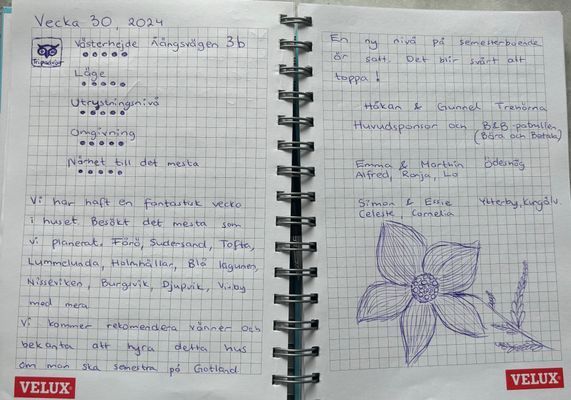 Vecka 30, 2024
Tripadvisor
Västerhejde Ängsvägen 3b
Läge
Utrustningsnivå
Omgivning
Närhet till det mesta
Vi har haft en fantastisk vecka
i huset. Besökt det mesta som
vi planerat. Fårö, Sudersand, Tofta,
Lummelunda, Holmhällar, Blå lagunen,
Nisseviken, Burgsvik, Djupvik, Visby
med mera
Vi kommer rekomendera vänner och
bekanta att hyra detta hus
om man ska semestra på Gotland
VELUX
En ny nivå på semesterboende
är satt. Det blir svårt att
toppa!
Håkan & Gunnel Trehörna
Huvudsponsor och B&B-patrullen
(Bära och Betala)
Emma & Marthin Ödeshög
Alfred, Ronja, Lo
Simon & Essie Ytterby, Kungälv
Celeste, Cornelia
VELUX